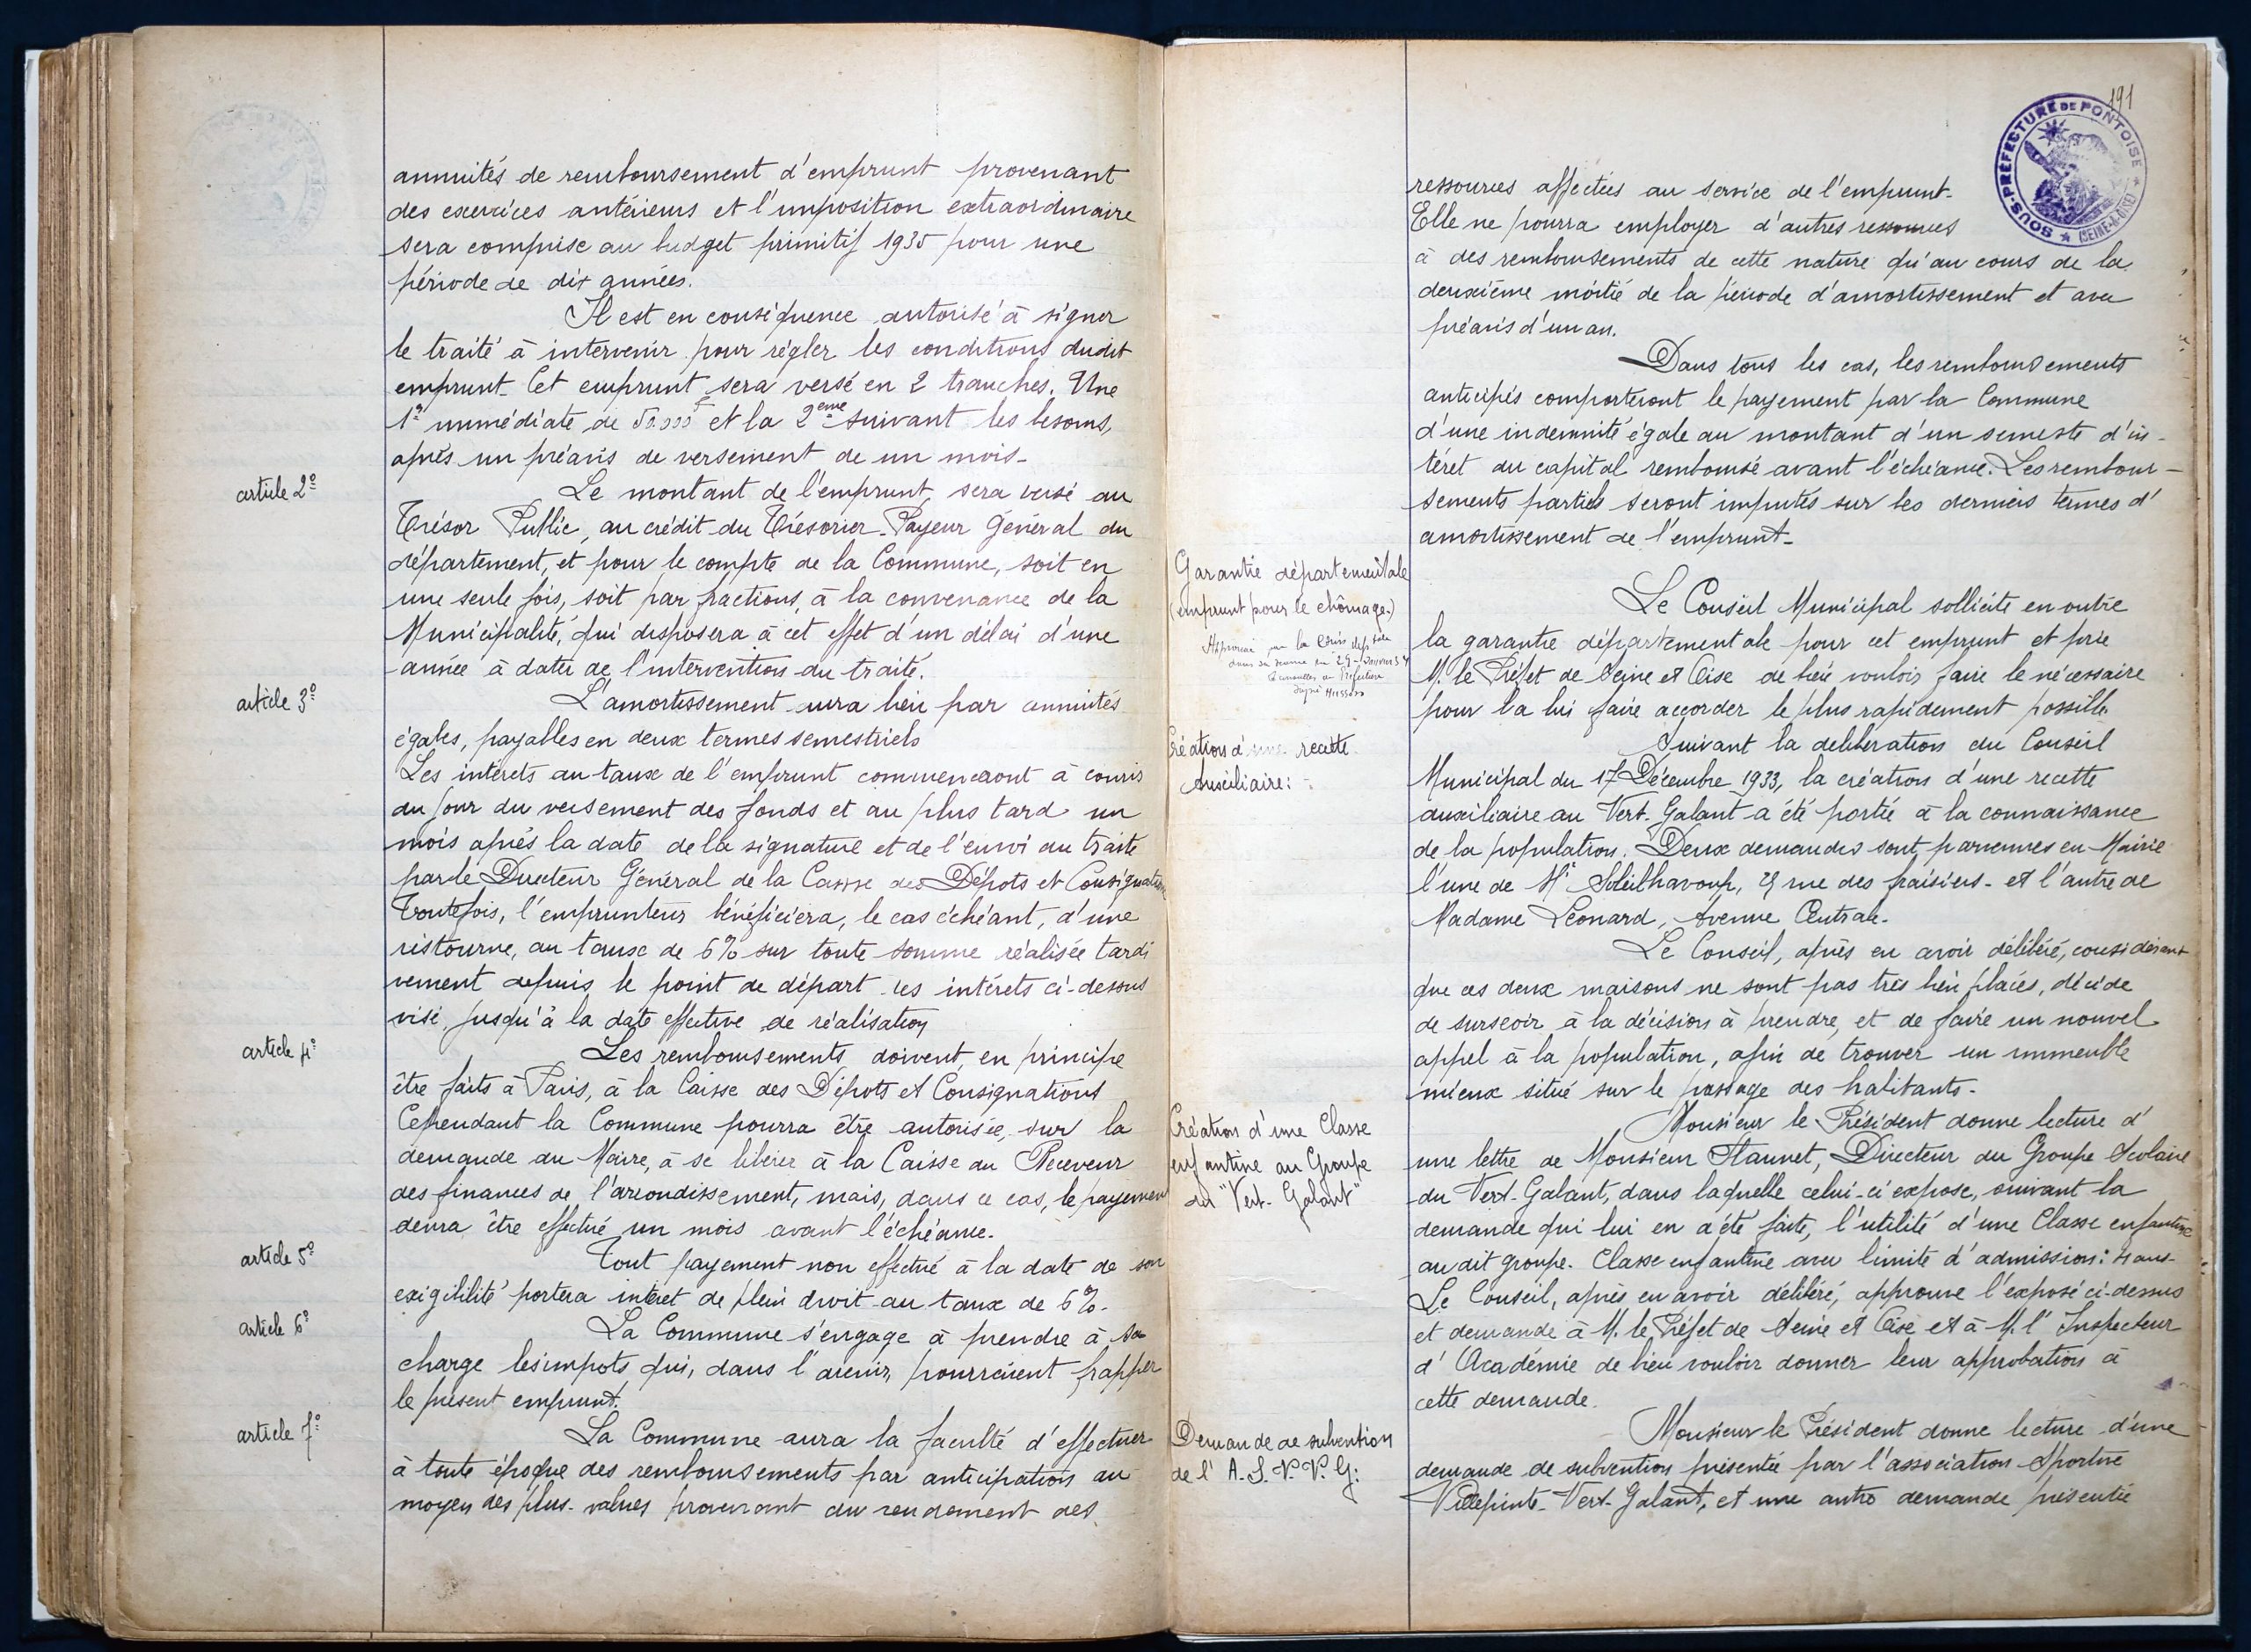 annuités de remboursement d'emprunt provenant
des exercices antérieurs et l'imposition extraordinaire
sera comprise au budget primitif 1935 pour une
période de dix années.
Il est en conséquence autorisé à signer
le traité à intervenir pour régler les conditions dudit
emprunt. Cet emprunt sera versé en 2 tranches. Une
1º immédiate de 50.000f et la 2eme suivant les besoins,
après un préavis de versement de un mois-
article 2º
Le montant de l'emprunt sera versé au
Trésor Public, au crédit du Trésorier-Payeur Général du
département, et pour le compte de la Commune, soit en
une seule fois, soit par fractions, à la convenance de la
Municipalité, qui disposera à cet effet d'un délai d'une
année à dater de l'intervention du traité.
article 3º
L'amortissement aura lieu par annuités
égales, payables en deux termes semestriels
Les intérêts au taux de l'emprunt commenceront à courir
du jour du versement des fonds et au plus tard un
mois après la date de la signature et de l'envoi du traité
par le Directeur Général de la Caisse des Dépots et Consignations
Toutefois, l'emprunteur bénéficiera, le cas échéant, d'une
ristourne, au taux de 6% sur toute somme réalisée tardi
vement depuis le point de départ des intérêts ci-dessus
visé, jusqu'à la date effective de réalisation
article 4º
Les remboursements doivent en principe
être faits à Paris, à la Caisse des Dépots et Consignations
Cependant la Commune pourra être autorisée, sur la
demande du Maire, à se libérer à la Caisse du Receveur
des finances de l'arrondissement, mais, dans ce cas, le payement
devra être effectué un mois avant l'échéance.
article 5º
Tout payement non effectué à la date de son
exigibilité portera intéret de plein droit au taux de 6%.
article 6º
La Commune s'engage à prendre à sa
charge les impots qui, dans l'avenir, pourraient frapper
le présent emprunt.
article 7º
La Commune aura la faculté d'effectuer
à toute époque des remboursements par anticipation au
moyen des plus-values provenant du rendement des
191
SOUS-PRÉFECTURE DE PONTOISE
(SEINE-&-OISE)
ressources affectées au service de l'emprunt.
Elle ne pourra employer d'autres ressources
à des remboursements de cette nature qu'au cours de la
deuxième moitié de la période d'amortissement et avec
préavis d'un an.
Dans tous les cas, les remboursements
anticipés comporteront le payement par la Commune
d'une indemnité égale au montant d'un semestre d'in-
téret du capital remboursé avant l'échéance. Les rembour-
sements partiels seront imputés sur les derniers termes d'
amortissement de l'emprunt-
Garantie départementale
(emprunt pour le chômage.)
dans sa séance du 29 Janvier 34
Le Conseil Municipal sollicite en outre
la garantie départementale pour cet emprunt et prie
M. le Préfet de Seine et Oise de bien vouloir faire le nécessaire
pour la lui faire accorder le plus rapidement possible
Création d'une recette
Auxiliaire:
Suivant la délibération du Conseil
Municipal du 17 Décembre 1933, la création d'une recette
auxiliaire au Vert-Galant a été portée à la connaissance
de la population. Deux demandes sont parvenues en Mairie
l'une de Mr Soleilhavoup, 29 rue des fraisiers- et l'autre de
Madame Léonard, Avenue Centrale.
Le Conseil, après en avoir délibéré, considérant
que ces deux maisons ne sont pas très bien placées, décide
de surseoir à la décision à prendre, et de faire un nouvel
appel à la population, afin de trouver un immeuble
mieux situé sur le passage des habitants-
Création d'une Classe
enfantine au Groupe
du "Vert-Galant"
Monsieur le Président donne lecture d'
une lettre de Monsieur Directeur du Groupe Scolaire
du Vert-Galant, dans laquelle celui-ci expose, suivant la
demande qui lui en a été faite, l'utilité d'une Classe enfantine
au dit groupe. Classe enfantine avec limite d'admission: 4 ans-
Le Conseil, après en avoir délibéré, approuve l'exposé ci-dessus
et demande à M. le Préfet de Seine et Oise et à M. l'Inspecteur
d'Académie de bien vouloir donner leur approbation à
cette demande.
Demande de subvention
de l'A.S.V.V.G:
Monsieur le Président donne lecture d'une
demande de subvention présentée par l'association Sportive
Villepinte-Vert-Galant, et une autre demande présentée